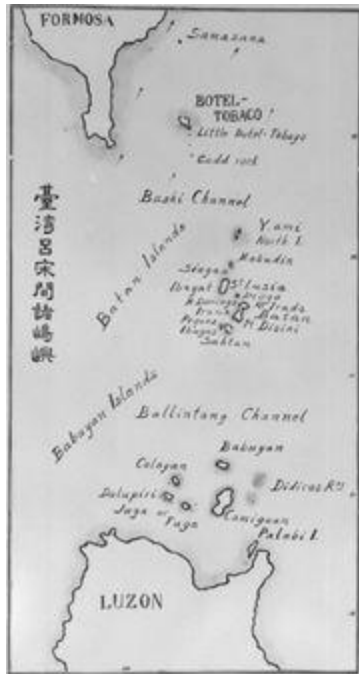 FORMOSA
Samasana
BOTEL-
TOBACO
Little Botel-Tobago
Gadd rock
Bashi Channel
臺湾呂宋間諸嶋嶼
Batan Islands
Yami
North I.
Mabudin
Siayan
Ibayat
St Lusia
Diogo
Mt Irada
Batan
Mt Disini
Ibugos
Sabtan
Babuyan Islands
Ballintang Channel
Babuyan
Calayan
Didicas Rks
Dalupiri
Juga or
Fuga
Camiguan
Palabi I.
LUZON